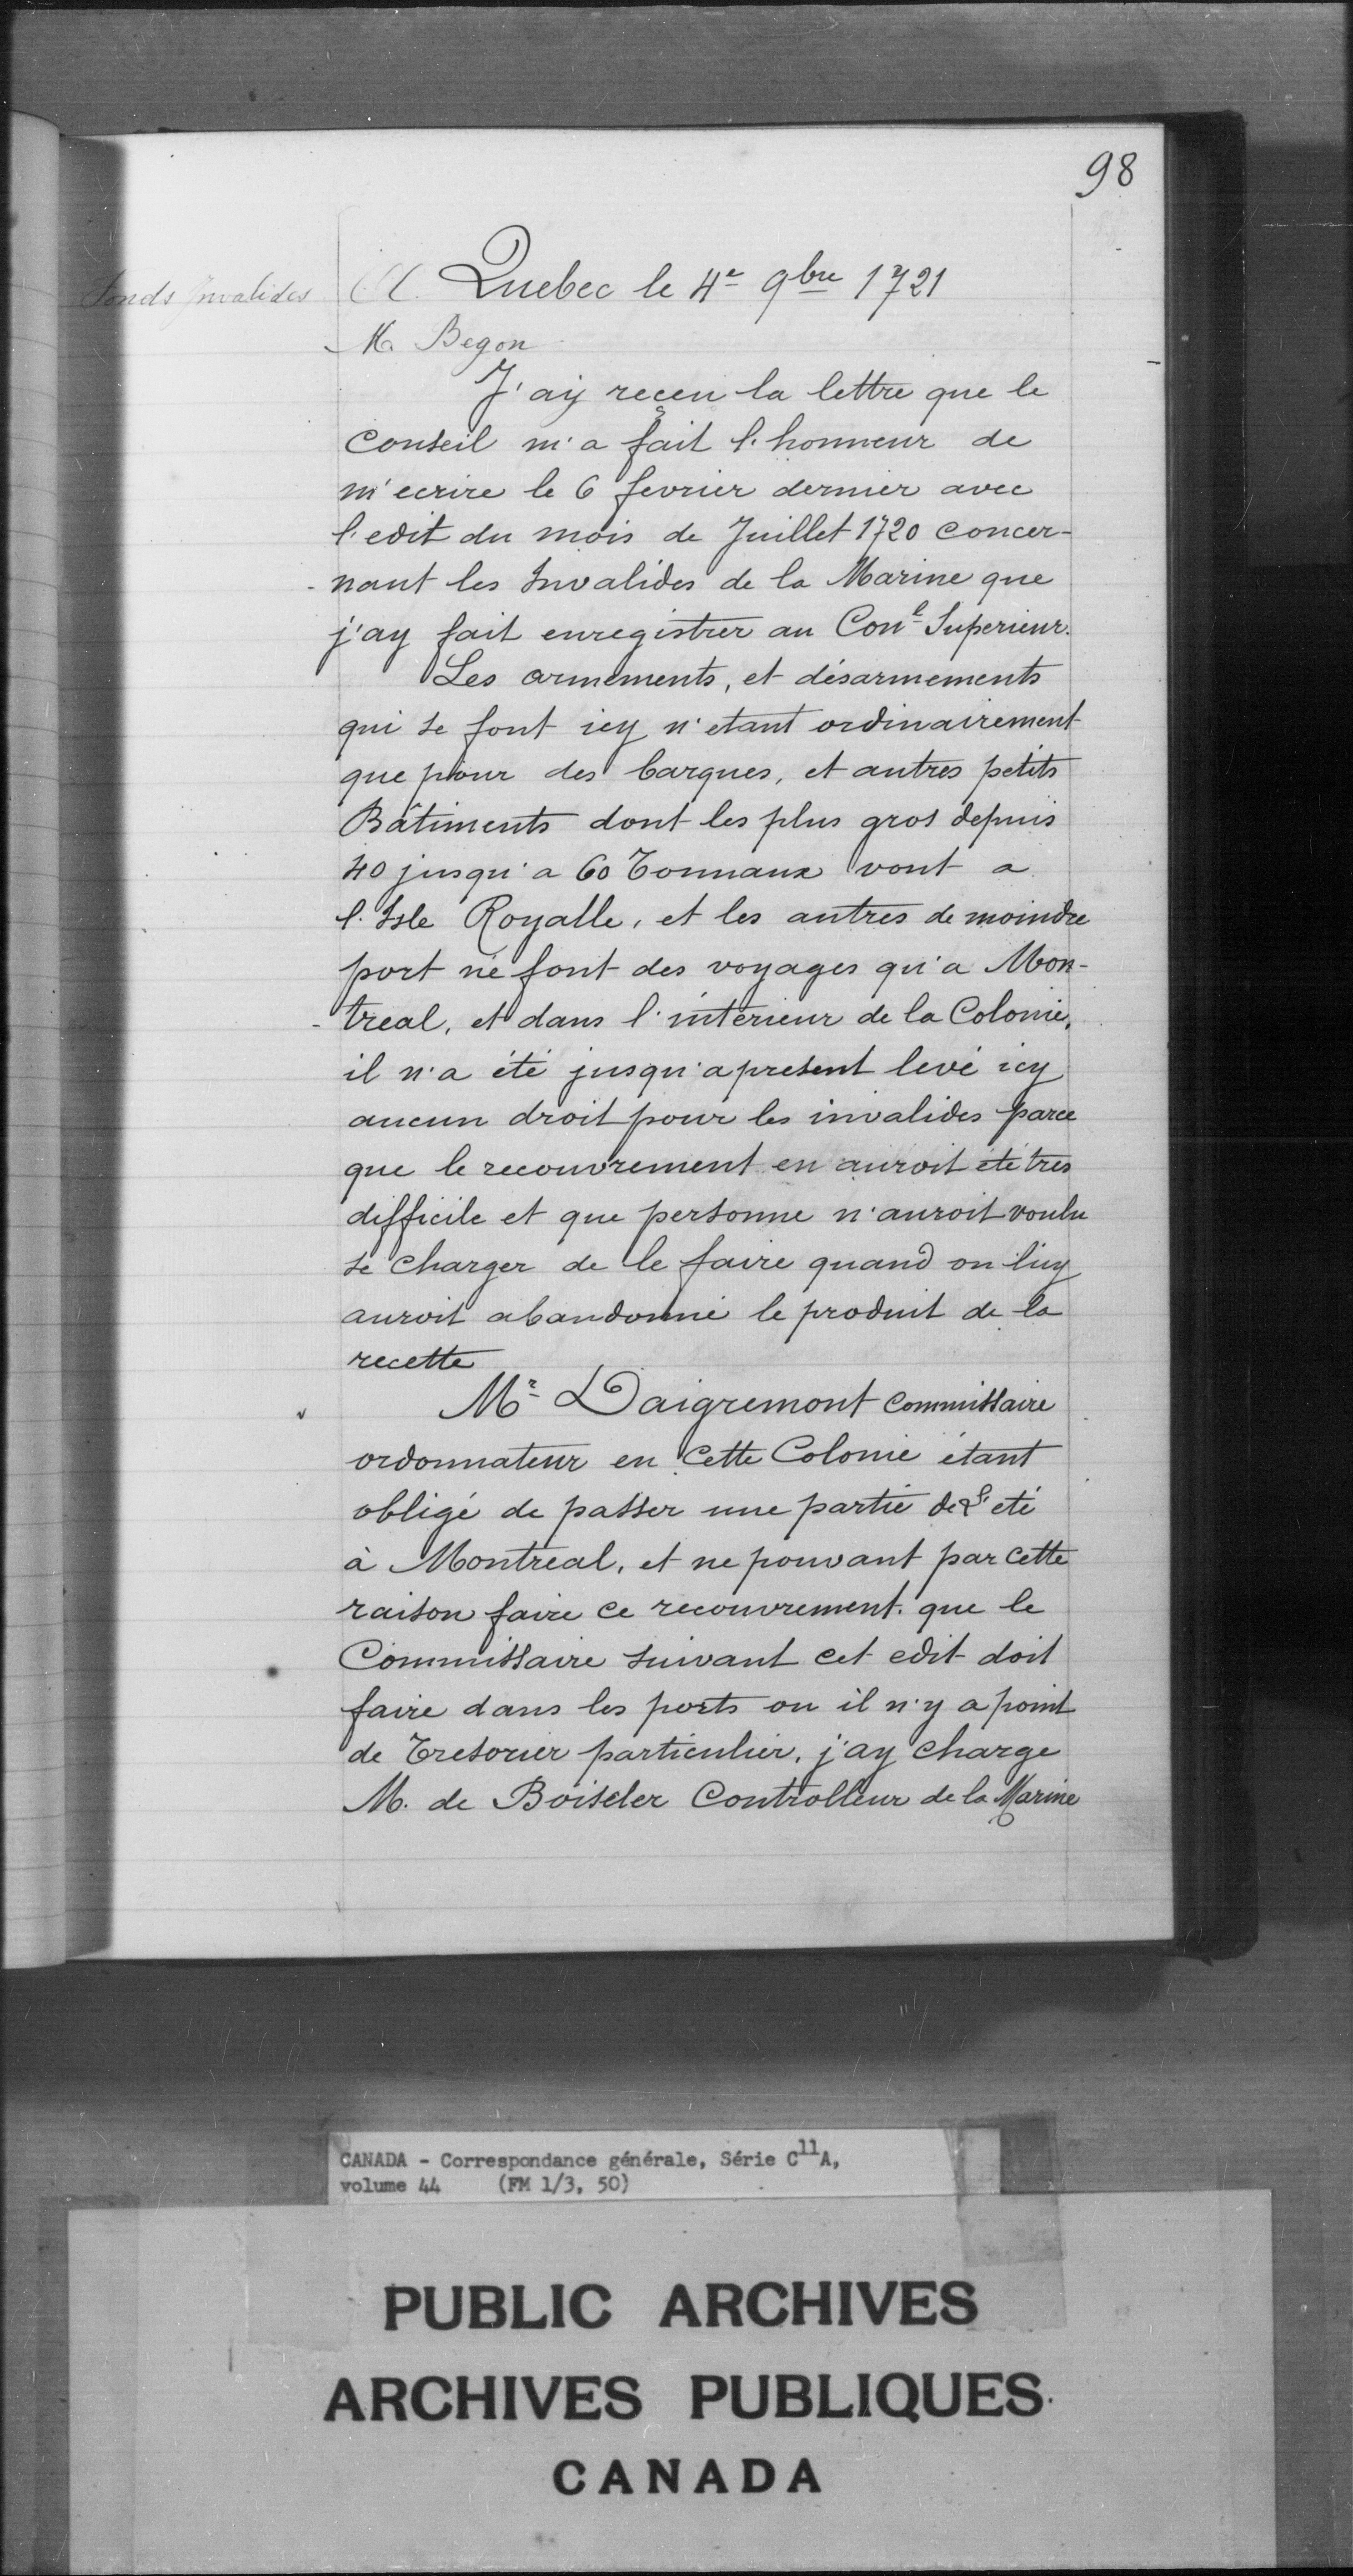 98
Fonds Invalides
A Quebec le 4e 9bre 1721
M. Begon
J'ay receu la lettre que le
Conseil m'a fait l'honneur de
m'ecrire le 6 fevrier dernier avec
l'edit du mois de Juillet 1720 concer-
-nant les Invalides de la Marine que
j'ay fait enregistrer au Conl Superieur.
Les armements, et désarmements
qui se font icy n'etant ordinairement
que pour des barques, et autres petits
Bâtiments dont les plus gros depuis
40 jusqu'a 60 Tonnaux vont a
l'Isle Royalle, et les autres de moindre
port ne font des voyages qu'a Mon-
-treal, et dans l'interieur de la Colonie,
il n'a été jusqu'apresent levé icy
aucun droit pour les invalides parce
que le recouvrement en auroit été tres
difficile et que personne n'auroit voulu
se charger de le faire quand on luy
auroit abandonné le produit de la
recette
Mr Daigremont Commissaire
ordonnateur en Cette Colonie étant
obligé de passer une partie de l'eté
à Montreal, et ne pouvant par cette
raison faire ce recouvrement que le
Commissaire suivant cet edit doit
faire dans les ports ou il n'y a point
de Tresorier particulier, j'ay charge
M. de Boiseler Controlleur de la Marine
CANADA - Correspondance générale, Série C11A,
volume 44 (FM 1/3, 50)
PUBLIC ARCHIVES
ARCHIVES PUBLIQUES
CANADA